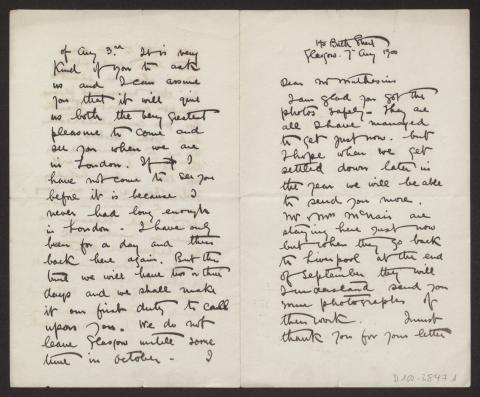 140 Bath Street
Glasgow. 7th Aug 1900
Dear Mr Muthesius
I am glad you got the
photos safely - They are
all I have managed
to get just now. but
I hope when we get
settled down later in
the year we will be able
to send you more.
Mr Mrs McNair are
staying here just now
but when they go back
to Liverpool at the end
of September they will
I understand send you
some photographs of
their work. I must
thank you for your letter
of Aug 3rd. It is very
kind of you to ask
us and I can assure
you that it will give
us both the very greatest
pleasure to come and
see you when we are
in London. If I
have not come to see you
before it is because I
never had long enough
in London. I have only
been for a day and then
back here again. But this
time we will have two or three
days and we shall make
it our first duty to call
upon you. We do not
leave Glasgow untill some
time in October - I
D 100-3847 A